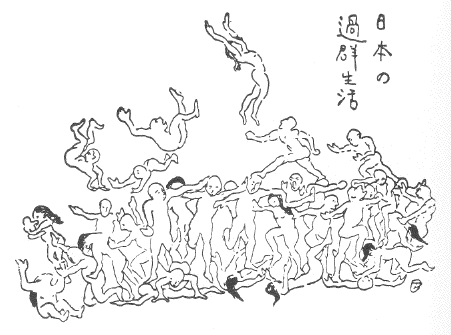 日本の
過群生活